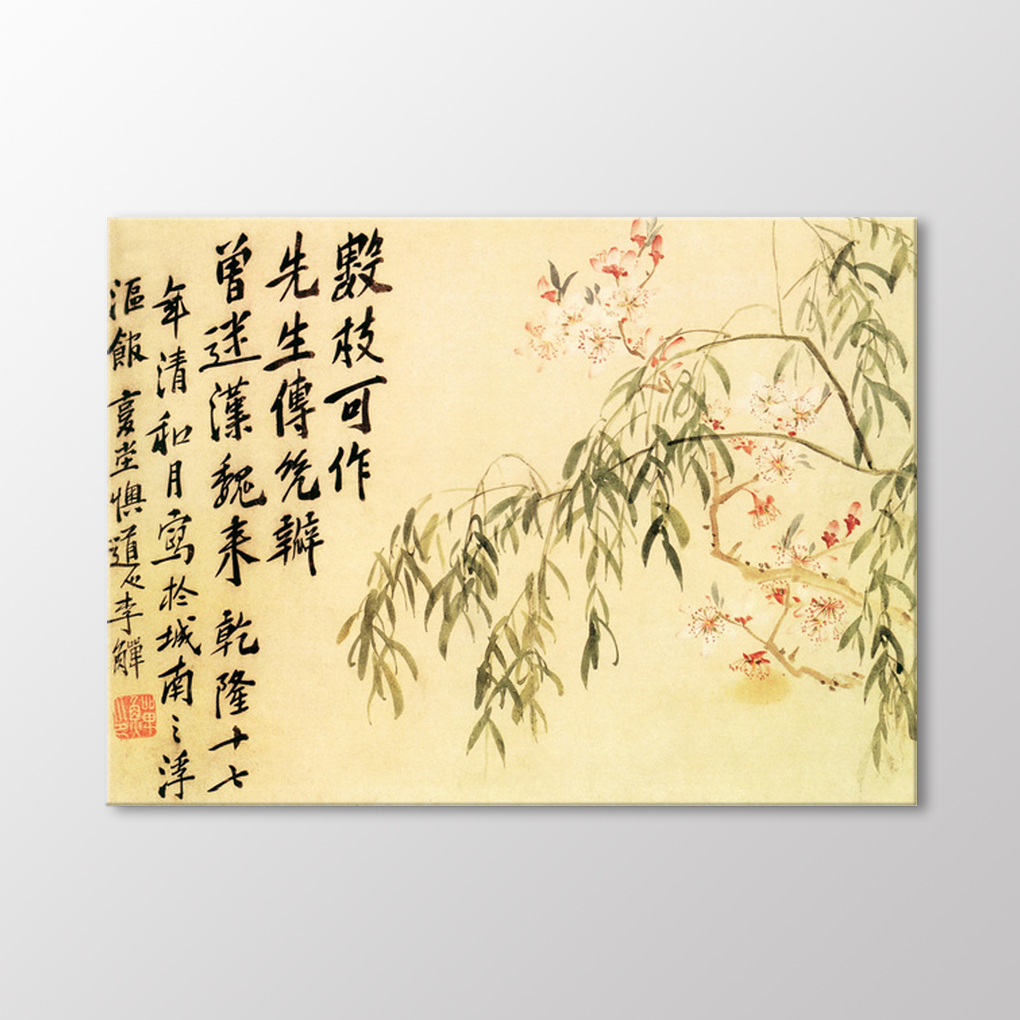 數枝可作
先生傳凭辯
曾迷漢魏来 乾隆十七
年清和月寫於城南之浮
漚館 復堂懊道人李觶